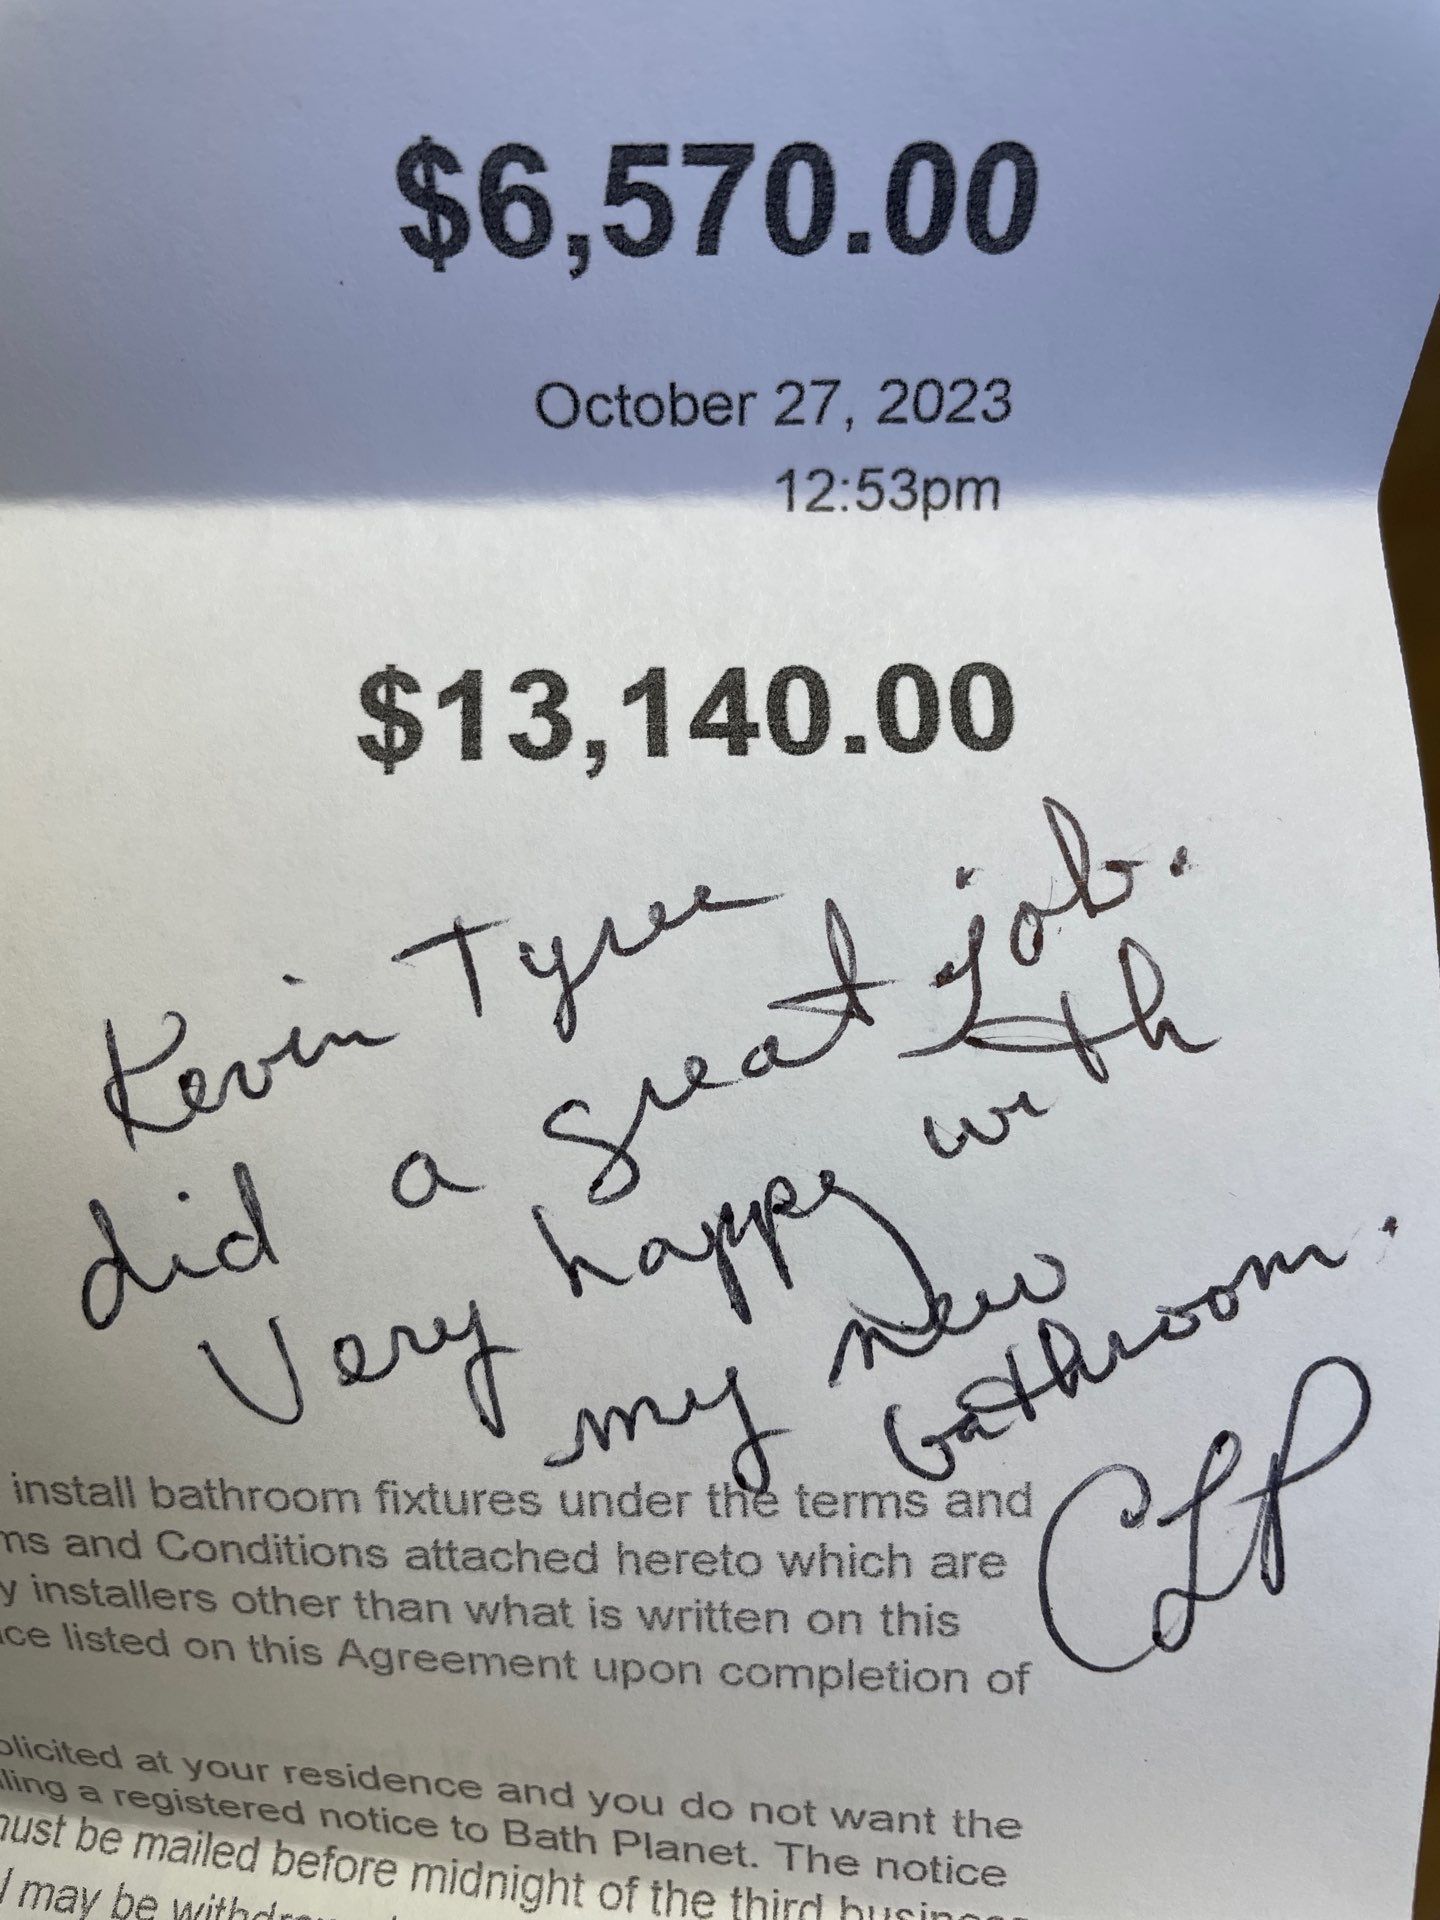 $6,570.00
October 27, 2023
12:53pm
$13,140.00
Kevin Tyree
did a great job.
Very happy with
my new
bathroom.
CLP
install bathroom fixtures under the terms and
ms and Conditions attached hereto which are
y installers other than what is written on this
ice listed on this Agreement upon completion of
olicited at your residence and you do not want the
iling a registered notice to Bath Planet. The notice
must be mailed before midnight of the third business
may be